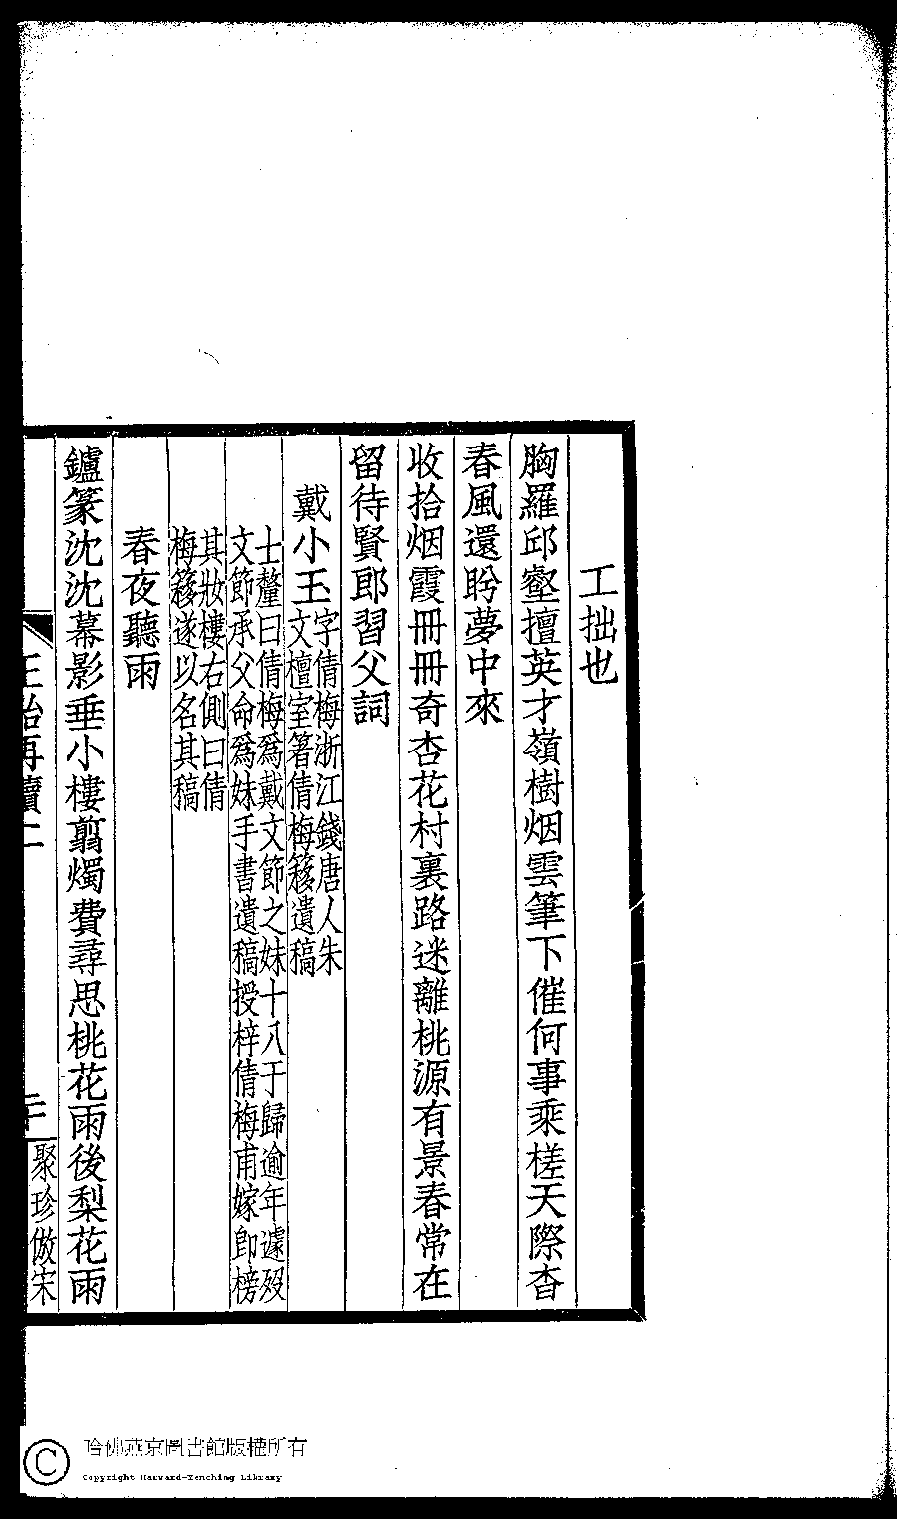 工拙也
胸羅邱壑擅英才嶺樹烟雲筆下催何事乘槎天際杳
春風還盻夢中來
收拾烟霞冊冊奇杏花村裏路迷離桃源有景春常在
留待賢郎習父詞
戴小玉
字倩梅浙江錢唐人朱
文檀室箸倩梅簃遺稿
士釐曰倩梅爲戴文節之妹十八于歸逾年遽歿
文節承父命爲妹手書遺稿授梓倩梅甫嫁卽榜
其妝樓右側曰倩
梅簃遂以名其稿
春夜聽雨
鑪篆沈沈幕影垂小樓翦燭費尋思桃花雨後梨花雨
再續二
聚珍倣宋
哈佛燕京圖書館版權所有
Copyright Harvard-Yenching Library